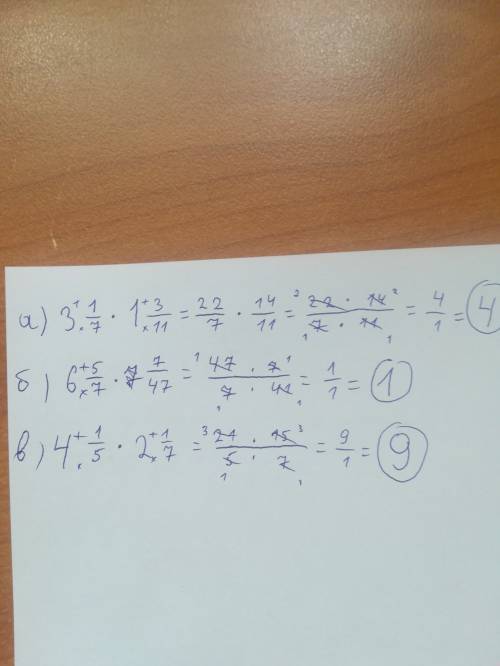 а) 3 1/7 · 1 3/11 = 22/7 · 14/11 = 22 · 14 / 7 · 11 = 4/1 = 4
б) 6 5/7 · 7/47 = 47 · 7 / 7 · 41 = 1/1 = 1
в) 4 1/5 · 2 1/7 = 21 · 15 / 5 · 7 = 9/1 = 9